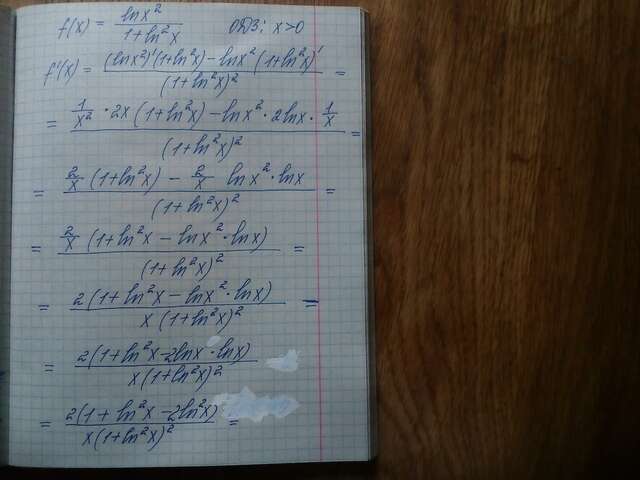 f(x) = lnx² / (1+ln²x) ОДЗ: x>0
f'(x) = ((lnx²)'(1+ln²x) - lnx²(1+ln²x)') / (1+ln²x)² =
= (1/x² · 2x(1+ln²x) - lnx² · 2lnx · 1/x) / (1+ln²x)² =
= (2/x (1+ln²x) - 2/x lnx² · lnx) / (1+ln²x)² =
= (2/x (1+ln²x - lnx² · lnx)) / (1+ln²x)² =
= 2(1+ln²x - lnx² · lnx) / (x(1+ln²x)²) =
= 2(1+ln²x - 2lnx · lnx) / (x(1+ln²x)²)
= 2(1+ln²x - 2ln²x) / (x(1+ln²x)²) =